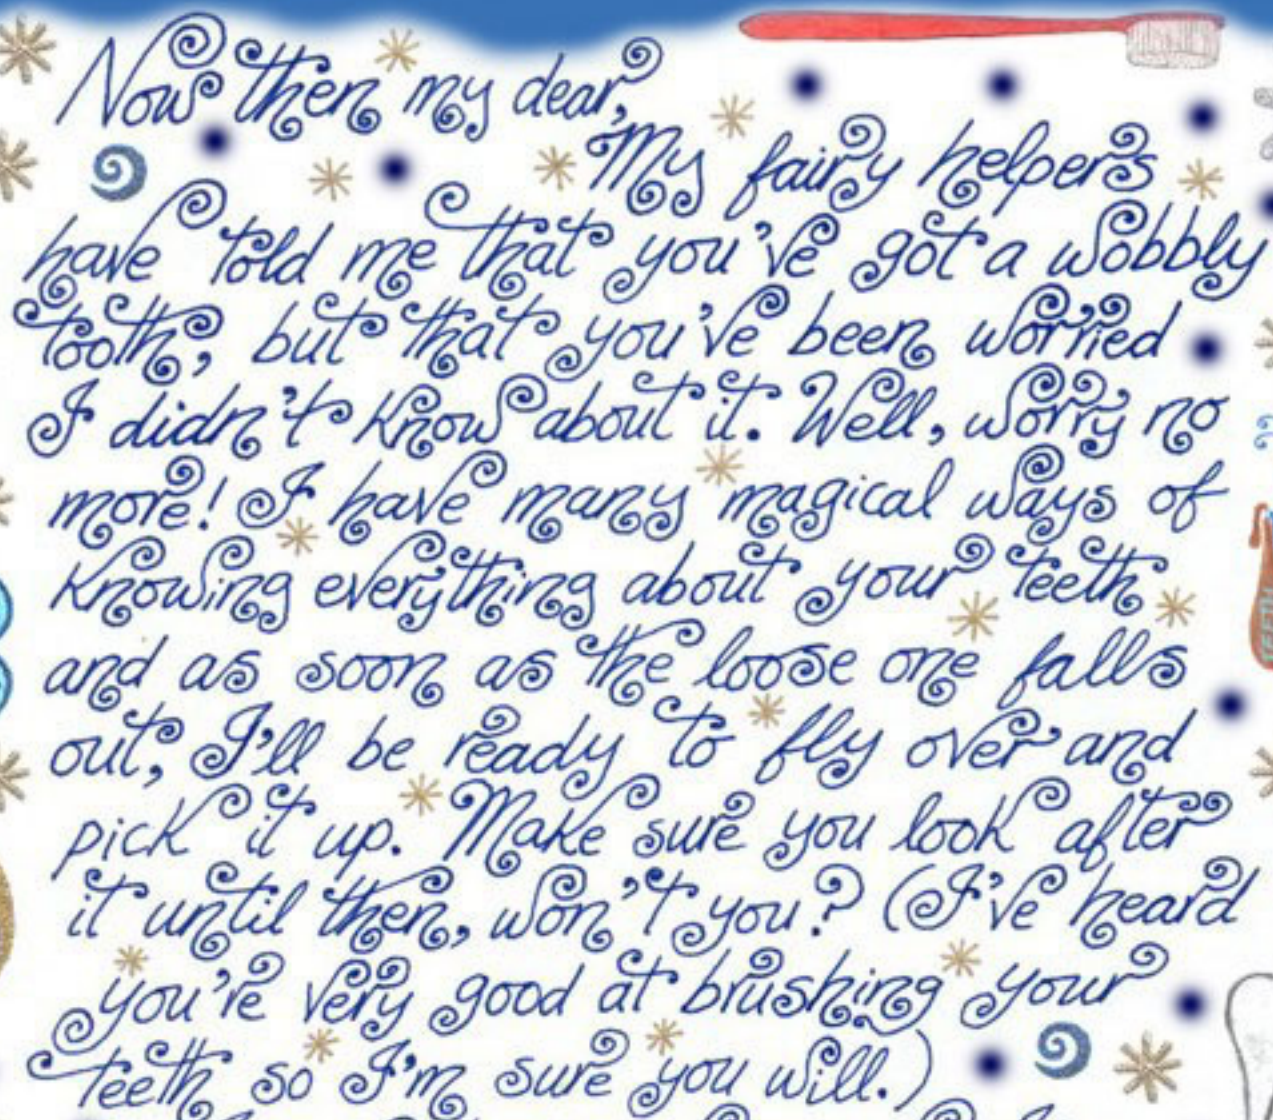 Now then my dear,
My fairy helpers
have told me that you've got a wobbly
tooth, but that you've been worried
I didn't know about it. Well, worry no
more! I have many magical ways of
knowing everything about your teeth
and as soon as the loose one falls
out, I'll be ready to fly over and
pick it up. Make sure you look after
it until then, won't you? (I've heard
you're very good at brushing your
teeth so I'm sure you will.)
TEETH